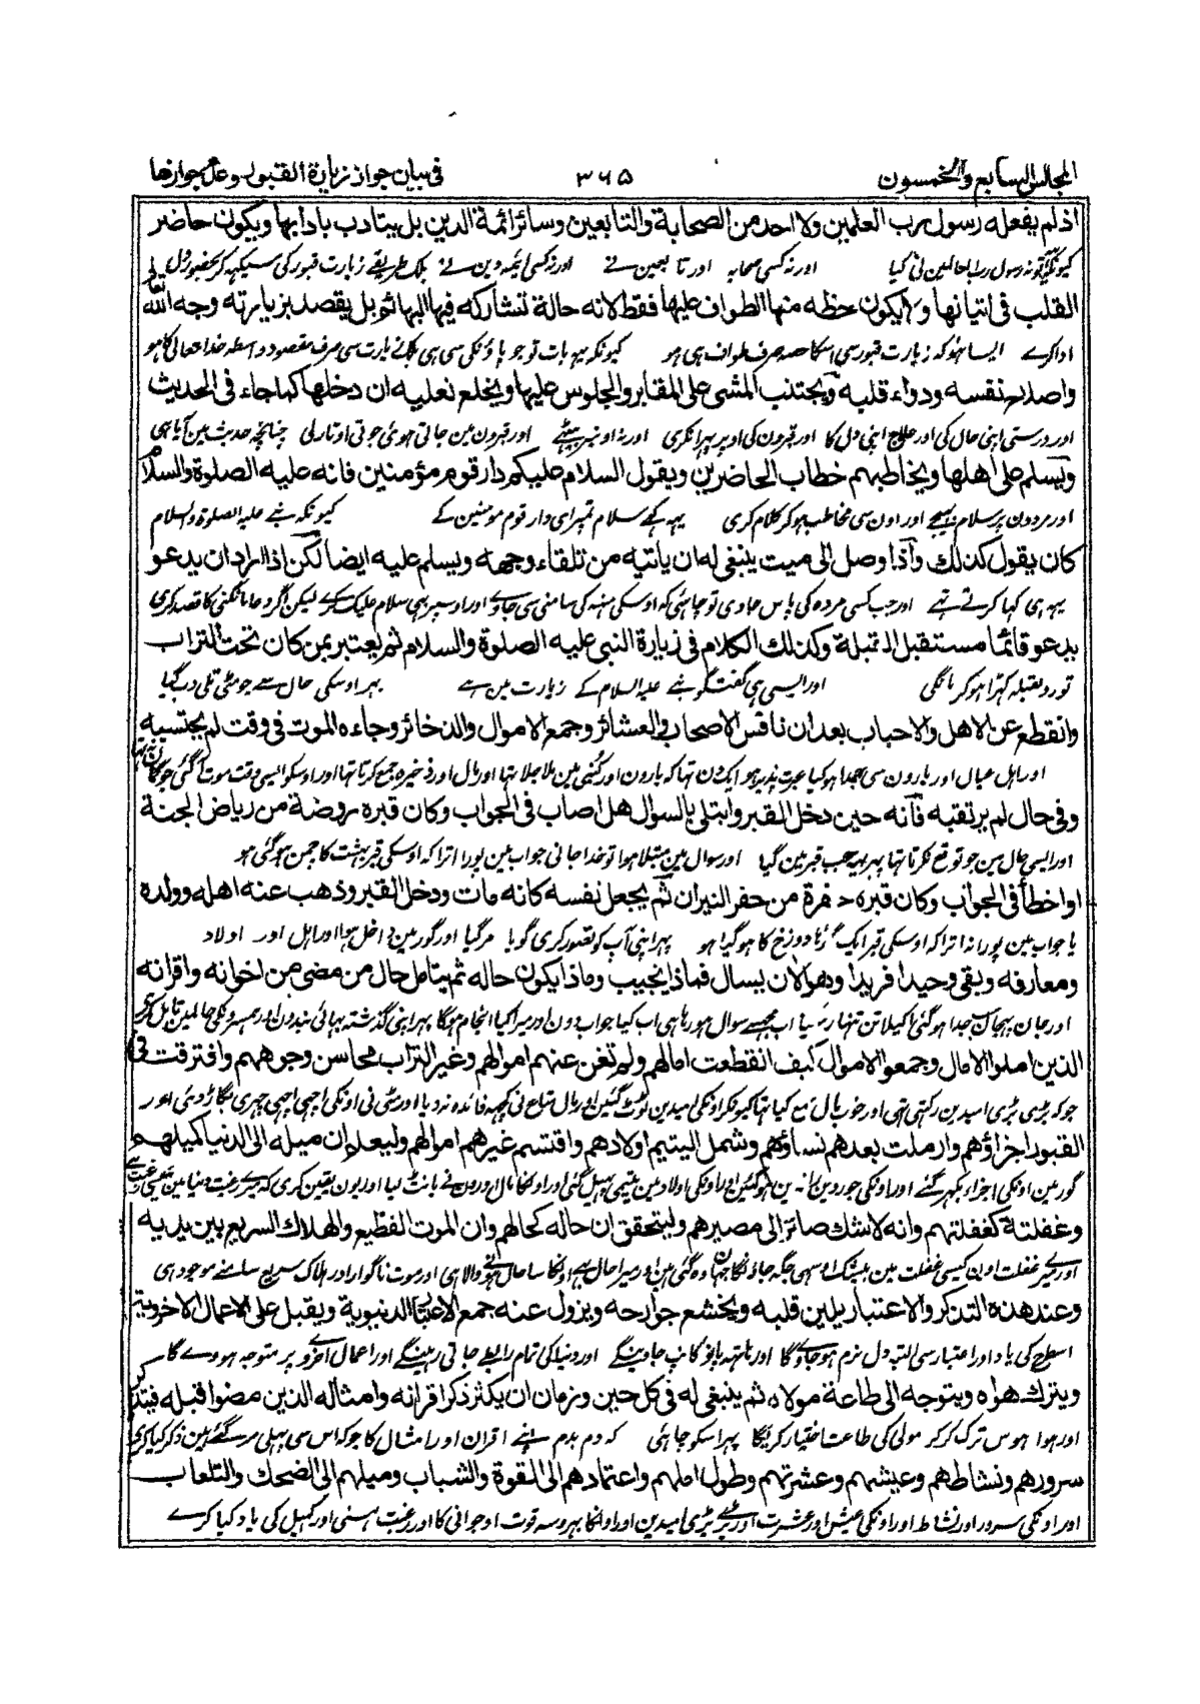 المجالس السابع والخمسون ۳۶۵ فى بيان جواز زيارة القبور وعدم جوازها
اذ لم يفعله رسول رب العلمين ولا احد من الصحابة والتابعين وسائر ائمة الدين بل يتادب بادابها ويكون حاضر
کیونکہ نہ رسول رب العالمین نی کیا اور نہ کسی صحابہ اور تابعین نے اور نہ کسی ایمہ دین نے بلکہ طریقے زیارت قبور کی سیکہہ کر بحضور دل
القلب فى اتيانها ولا يكون حظه منها الطواف عليها فقط لانه حالة تشاركه فيها البهائم بل يقصد بزيارته وجه الله تعالى
ادا کرے ایسا نہو کہ زیارت قبور سی اسکا حصہ صرف طواف ہی ہو کیونکہ یہہ بات تو چوپاؤنکی سی ہی بلکہ زیارت سی صرف مقصود واسطہ خدا تعالی کا ہو
واصلاح نفسه ودواء قلبه ويجتنب المشى على المقابر والجلوس عليها ويخلع نعليه ان دخلها كما جاء فى الحديث
اور درستی اپنی حال کی اور علاج اپنی دل کا اور قبرون کی اوپر پہرا نکری اور نہ اونپر بیٹہے اور قبرون مین جاتی ہوئی جوتی اوتار لی چنانچہ حدیث مین آیا ہی
ويسلم على اهلها ويخاطبهم خطاب الحاضرين ويقول السلام عليكم دار قوم مؤمنين فانه عليه الصلوة والسلام
اور مردون پر سلام بہیجے اور اون سی مخاطب ہو کر کلام کری یہہ کہے سلام تمپر ای دار قوم مومنین کے کیونکہ نبے علیہ الصلوة والسلام
كان يقول كذلك واذا وصل الى ميت ينبغى له ان ياتيه من تلقاء وجهه ويسلم عليه ايضا لكن اذا اراد ان يدعو
یہہ ہی کہا کرتے تہے اور جب کسی مردہ کی پاس جاوی تو چاہئی کہ اوسکی منہ کی سامنی سی جاوے اور اوسپر بہی سلام علیک کرے لیکن اگر دعا مانگنی کا قصد کری
يدعو قائما مستقبل القبلة وكذلك الكلام فى زيارة النبى عليه الصلوة والسلام ثم يعتبر بمن كان تحت التراب
تو رو بقبلہ کہڑا ہو کر مانگی اور ایسی ہی گفتگو نبے علیہ السلام کے زیارت مین ہے پہر اوسکی حال سے جو مٹی تلی دب گیا
وانقطع عن الاهل والاحباب بعد ان نافس الاصحاب والعشائر وجمع الاموال والذخائر وجاءه الموت فى وقت لم يحتسبه
اور اہل عیال اور یارون سی جدا ہو گیا عبرت پذیر ہو ایک دن تہا کہ یارون اور کنبی مین ملا جلا تہا اور مال اور ذخیرہ جمع کرتا تہا اور اوسکو ایسی وقت موت آ گئی جو گمان بہی نتہا
وفى حال لم يرتقبه فانه حين دخل القبر وابتلى بالسوال هل اصاب فى الجواب وكان قبره روضة من رياض الجنة
اور ایسی حال مین جو توقع نکرتا تہا پہر یہہ جب قبر مین گیا اور سوال مین مبتلا ہوا تو خدا جانی جواب مین پورا اترا کہ اوسکی قبر بہشت کا چمن ہو گئی ہو
او اخطأ فى الجواب وكان قبره حفرة من حفر النيران ثم يجعل نفسه كانه مات ودخل القبر وذهب عنه اهله وولده
یا جواب مین پورا نہ اترا کہ اوسکی قبر ایک گڑہا دوزخ کا ہو گیا ہو پہر اپنی آپ کو تصور کری گویا مر گیا اور گور مین داخل ہوا اور اہل اور اولاد
ومعارفه وبقى وحيدا فريدا وهو الآن يسال فماذا يجيب وماذا يكون حاله ثم يتامل حال من مضى من اخوانه واقرانه
اور جان پہچان سب جدا ہو گئی اکیلا تن تنہا رہ گیا اب مجہسے سوال ہو رہا ہی اب کیا جواب دون اور میرا کیا انجام ہوگا پہر اپنی گذشتہ بہائی بندون اور ہمسرونکی حالمین تامل کری
الذين املوا الامال وجمعوا الاموال كيف انقطعت امالهم ولم تغن عنهم اموالهم وغير التراب محاسن وجوههم وافترقت فى
جو کہ بڑی بڑی امیدین رکہتی تہی اور خوب مال جمع کیا تہا کیونکر اونکی امیدین ٹوٹ گئین اور مال متاع نی کچہہ فائدہ ندیا اور مٹی نی اونکی اچہی اچہی چہری بگاڑ دئی اور
القبور اجزاؤهم وارملت بعدهم نساؤهم وشمل اليتيم اولادهم واقتسم غيرهم اموالهم وليعلم ان ميله الى الدنيا كميلهم
گور مین اونکی اجزاء بکہر گئے اور اونکی جورو وین رانڈین ہو گئین اور اونکی اولاد مین یتیمی پہیل گئی اور اونکا مال اورون نے بانٹ لیا اور یون یقین کری کہ میری رغبت دنیا مین جیسی رغبت ہے
وغفلته كغفلتهم وانه لاشك صائر الى مصيرهم وليتحقق ان حاله كحالهم وان الموت الفظيع والهلاك السريع بين يديه
اور میری غفلت اون کیسی غفلت مین بیشک اوسہی جگہ جاؤنگا جہان وہ گئی ہین اور میرا حال بہی اونکا سا حال ہونے والا ہی اور موت ناگوار اور ہلاک سریع سامنے موجود ہی
وعند هذه التذكر والاعتبار يلين قلبه ويخشع جوارحه ويزول عنه جمع الاعتبار الدنيوية ويقبل على الاعمال الاخروية
اسطرح کی یاد اور اعتبار سی البتہ دل نرم ہو جاویگا اور ہاتہہ پانو کانپ جاوینگے اور دنیا کی تمام رابطے جاتی رہینگے اور اعمال آخرو پر متوجہ ہووے گا
ويترك هواه ويتوجه الى طاعة مولاه ثم ينبغى له فى كل حين وزمان ان يكثر ذكر اقرانه وامثاله الذين مضوا قبله فيتذكر
اور ہوا ہوس ترک کر کر مولی کی طاعت اختیار کریگا پہر اسکو چاہئی کہ دم بدم اپنے اقران اور امثال کا جو کہ اس سی پہلی مر گئے ہین ذکر کیا کری
سرورهم ونشاطهم وعيشهم وعشرتهم وطول املهم واعتمادهم الى القوة والشباب وميلهم الى الضحك والتلعاب
اور اونکی سرور اور نشاط اور اونکی عیش اور عشرت اور بڑی بڑی امیدین اور اونکا بہروسہ قوت اور جوانی کا اور رغبت ہنسی اور کہیل کی یاد کیا کرے